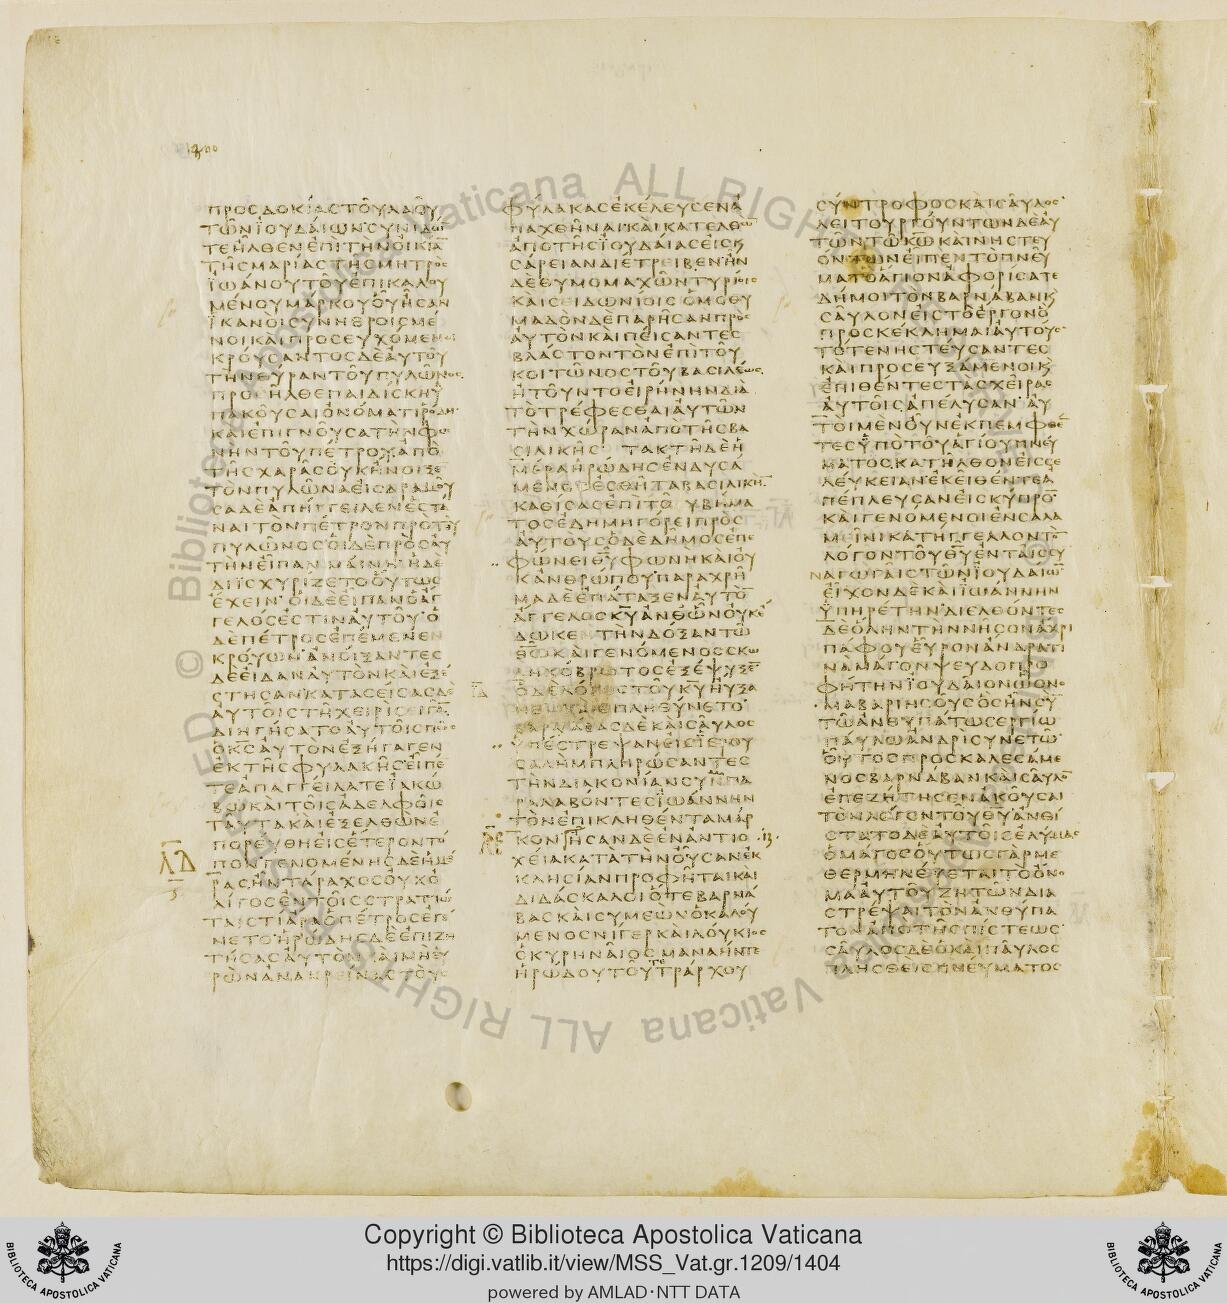 προσδοκίαστοῦλαοῦ
τῶνϊουδαίωνσυνιδώ
τεῆλθενἐπιτηνοικία
τῆσμαρίαστῆσμητρὸσ
ϊωάνουτοῦἐπικαλου
μένουμάρκουοὗῆσαν
ϊκανοὶσυνηθροισμέ
νοικαιπροσευχόμενοι
κρούσαντοσδεαὐτοῦ
τηνθύραντοῦπυλῶνοσ
προσῆλθεπαιδίσκηὑ
πακοῦσαιὀνόματιρόδη
καιἐπιγνοῦσατηνφω
νηντοῦπέτρουἀπο
τῆσχαρᾶσοὐκήνοιξε
τὸνπυλῶναεἰσδραμοῦ
σαδεἀπήγγειλενἑστα
ναιτονπέτρονπρὸτοῦ
πυλῶνοσοἱδεπρὸσαὐ
τηνεἶπανμαίνηηδε
διϊσχυρίζετοοὕτωσ
ἔχεινοἱδεεἶπανὁἄγ
γελοσἐστιναὐτοῦὁ
δεπέτροσἐπέμενεν
κρούωνἀνοίξαντεσ
δεεἶδαναὐτὸνκαιἐξέ
στησανκατασείσασδε
αὐτοῖστῆχειρὶσειγᾶ
διηγήσατοαὐτοῖσπῶσ
ὁκσαὐτὸνἐξήγαγεν
ἐκτῆσφυλακῆσεἶπέ
τεἀπαγγείλατεϊακώ
βωκαιτοῖσἀδελφοῖσ
ταῦτακαιἐξελθωνἐ
πορεύθηεἰσἕτεροντό
πονγενομένησδεἡμέ
ρασῆντάραχοσοὐχὀ
λίγοσἐντοῖσστρατιώ
ταιστίἄραὁπέτροσἐγέ
νετοἡρώδησδεἐπιζη
τήσασαὐτὸνκαιμὴεὑ
ρὼνἀνακρείναστοὺσ
φύλακασἐκέλευσενἀ
παχθῆναικαικατελθῶ
ἀποτῆσϊουδαίασεἰσκ
σάρειανδιέτρειβενῆν
δεθυμομαχῶντυρίοισ
καισειδωνίοισὁμοθυ
μαδὸνδεπαρῆσανπρὸσ
αὐτὸνκαιπείσαντεσ
βλάστοντὸνἐπιτοῦ
κοιτῶνοστοῦβασιλέωσ
ἠτοῦντοεἰρήνηνδιὰ
τὸτρέφεσθαιαὐτῶν
τὴνχώρανἀποτῆσβα
σιλικῆστακτῆδεἡ
μέραἡρώδησἐνδυσά
μενοσἐσθῆταβασιλικὴ
καθίσασἐπιτοῦβήμα
τοσἐδημηγόρειπρὸσ
αὐτουσὁδεδῆμοσἐπε
φώνειθῦφωνὴκαιοὐ
κἀνθρώπουπαραχρῆ
μαδεἐπάταξεναὐτὸ
ἄγγελοσκυἀνθῶνοὐκἔ
δωκεντηνδόξαντῶ
θωκαιγενόμενοσσκω
ληκόβρωτοσἐξέψυξε
ὁδελόγοστοῦκυηὔξα
νενκαιἐπληθύνετο
βαρνάβασδεκαισαῦλοσ
ὑπέστρεψανεἰσϊερου
σαλημπληρώσαντεσ
τὴνδιακονίανσυνπα
ραλαβόντεσϊωάννην
τὸνἐπικληθένταμάρ
κονῆσανδεἐνἀντιο
χείακατατὴνοὖσανἐκ
κλησίανπροφῆταικαι
διδάσκαλοιὅτεβαρνά
βασκαισυμεωνὁκαλού
μενοσνίγερκαιλούκιοσ
ὁκυρηναῖοσμαναήντε
ἡρώδουτοῦτετράρχου
σύντροφοσκαισαῦλοσ
λειτουργούντωνδεαὐ
τῶντῶκωκαινηστευ
όντωνεἶπεντοπνεῦ
ματοἅγιονἀφορίσατε
δήμοιτονβαρνάβανκ
σαῦλονεἰστοἔργονὁ
προσκέκλημαιαὐτούσ
τότενηστεύσαντεσ
καιπροσευξάμενοικ
ἐπιθέντεστασχεῖρασ
αὐτοῖσἀπέλυσαναὐ
τοὶμὲνοὖνἐκπεμφθέ
τεσὑπὸτοῦἁγίουπνεύ
ματοσκατῆλθονεἰσσε
λεύκειανἐκεῖθέντεἀ
πέπλευσανεἰσκύπρο
καιγενόμενοιἐνσαλα
μεῖνικατήγγελλοντο
λόγοντοῦθυἐνταῖσσυ
ναγωγαῖστῶνϊουδαίω
εἶχονδεκαιϊωάννην
ὑπηρέτηνδιελθόντεσ
δεὅληντὴννῆσονἄχρι
πάφουεὗρονἄνδρατι
νὰμάγονψευδοπρο
φήτηνϊουδαῖονὧὄνο
μαβαριησοῦσὃσἦνσὺ
τῶἀνθυπάτωσεργίω
παύλωἀνδρισυνετῶ
οὗτοσπροσκαλεσάμε
νοσβαρνάβανκαισαῦλο
ἐπεζήτησενἀκοῦσαι
τὸνλόγοντοῦθυἀνθί
στατοδεαὐτοῖσἐλύμασ
ὁμάγοσοὕτωσγὰρμε
θερμηνεύεταιτοὄνο
μααὐτοῦζητῶνδια
στρέψαιτὸνἀνθύπα
τονἀποτῆσπίστεωσ
σαῦλοσδεὁκαιπαῦλοσ
πλησθεισπνεύματοσ
Copyright © Biblioteca Apostolica Vaticana
https://digi.vatlib.it/view/MSS_Vat.gr.1209/1404
powered by AMLAD·NTT DATA